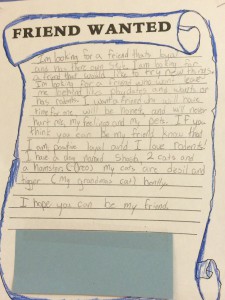 FRIEND WANTED
Im looking for a friend thats loyal
and
a friend that would like to try new things
Im looking for a friend who won't leave
me behind like playdays and stuff or
has rodents. I want a friend who will have
time for me will be honest and will never
hurt me, my feelings and my pets. If you
think you can be my friend know that
I am positive loyal and I love rodents!
I have a dog named 2 cats and
a hamster (Oreo) my cats are devil and
tigger (My grandmas cat) honey.
I hope you can be my friend.